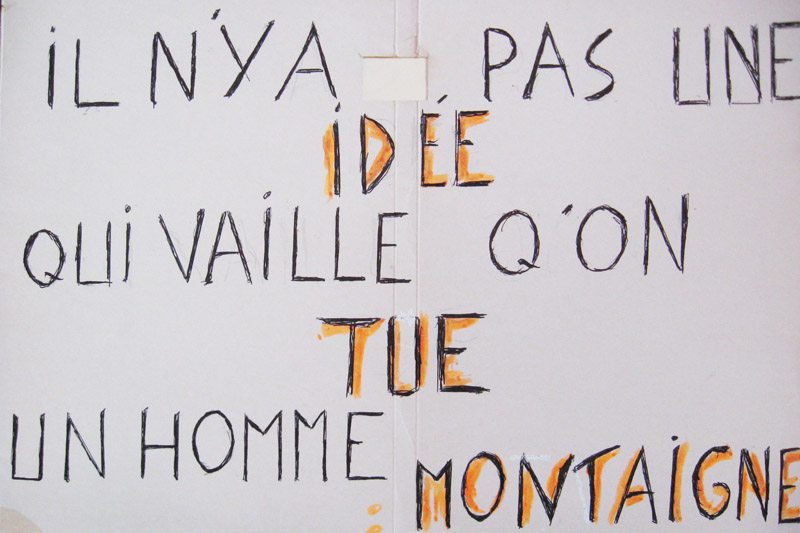 iL N'YA PAS UNE
iDÉE
QUi VAiLLE Q'ON
TUE
UN HOMME
: MONTAiGNE